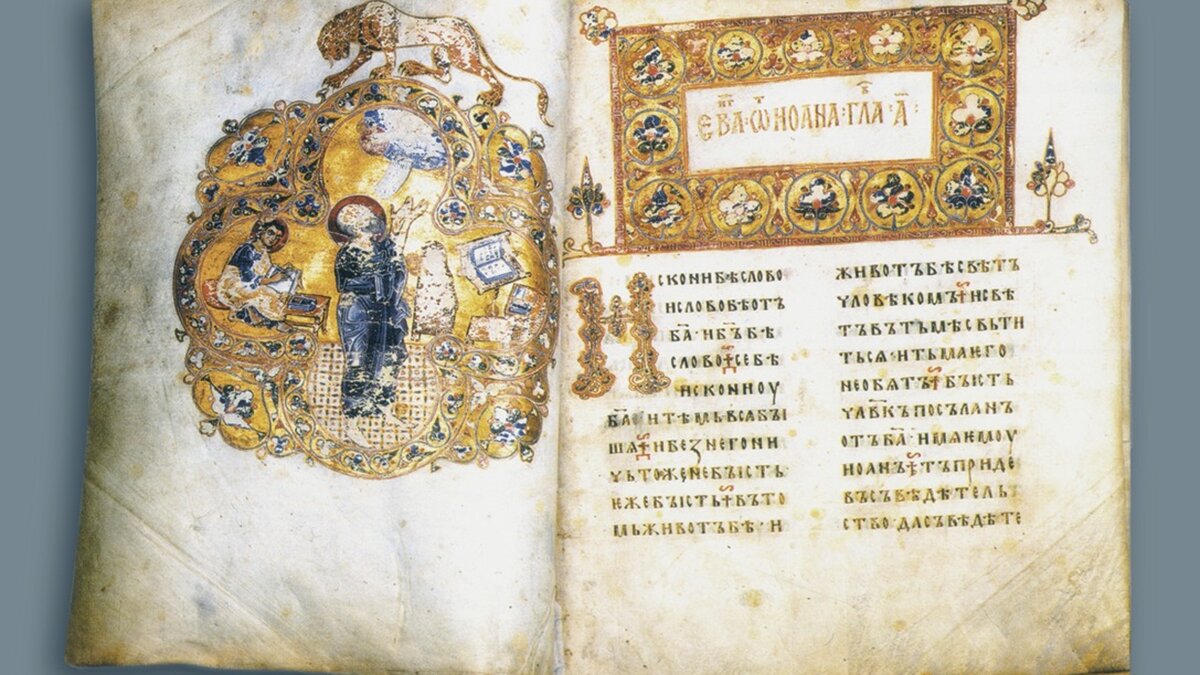 ЕВА·Ѿ ИОАНА·ГЛА·А҃·
ИСКОНИ БѢ СЛОВО
И СЛОВО БѢ ОТЪ
БА҃ · И БЪ҃ БѢ
СЛОВО СЕ БѢ
ИСКОНИ ОУ
БА҃ И ТѢМЬ ВСА БꙐ
ШѦ И БЕЗ НЕГО НИ
ЧЬТОЖЕ НЕ БꙐСТЬ
ЕЖЕ БꙐСТЬ ВЪ ТО
МЬ ЖИВОТЪ БѢ · И
ЖИВОТЪ БѢ СВѢТЪ
ЧЛОВѢКОМЪ И СВѢ
ТЪ ВЪ ТЬМѢ СВЬТИ
ТЬСѦ · И ТЬМА ЕГО
НЕ ОБѦТЪ БꙐСТЬ
ЧЛВ҃КЪ ПОСЪЛАНЪ
ОТЪ БА҃ · ИМѦ ЕМОУ
ИОАНЪ ТЪ ПРИДЕ
ВЪ СЪВѢДѢТЕЛЬ
СТВО · ДА СЪВѢДѢТЕ